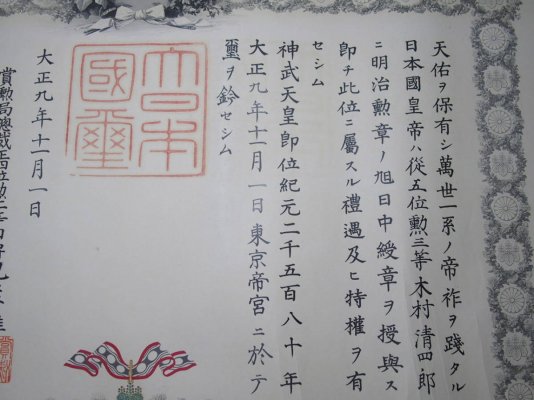 天佑ヲ保有シ萬世一系ノ帝祚ヲ踐タル
日本國皇帝ハ從五位勲三等木村清四郎
ニ明治勲章ノ旭日中綬章ヲ授與ス
即チ此位ニ屬スル禮遇及ヒ特權ヲ有
セシム
神武天皇即位紀元二千五百八十年
大正九年十一月一日東京帝宮ニ於テ
璽ヲ鈐セシム
大日本國璽
大正九年十一月一日
賞勲局總裁正四位勲二等